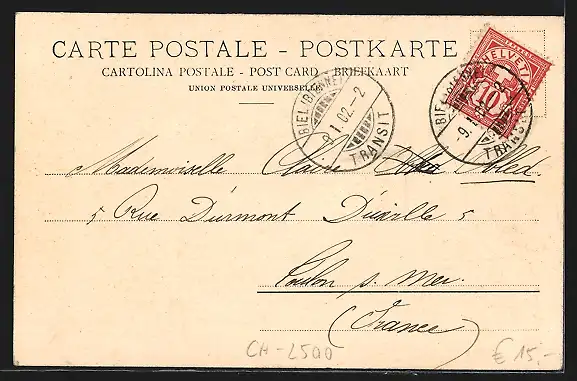 CARTE POSTALE – POSTKARTE
CARTOLINA POSTALE - POST CARD - BRIEFKAART
UNION POSTALE UNIVERSELLE
HELVETIA
10
BIEL (BIENNE)
9.I.02.-2
TRANSIT
BIEL (BIENNE)
-9.I.02.-2
TRANSIT
Mademoiselle Claire
5 Rue Durmont Durville 5
Toulon s. Mer.
(France)
CH-2500
€ 15,-